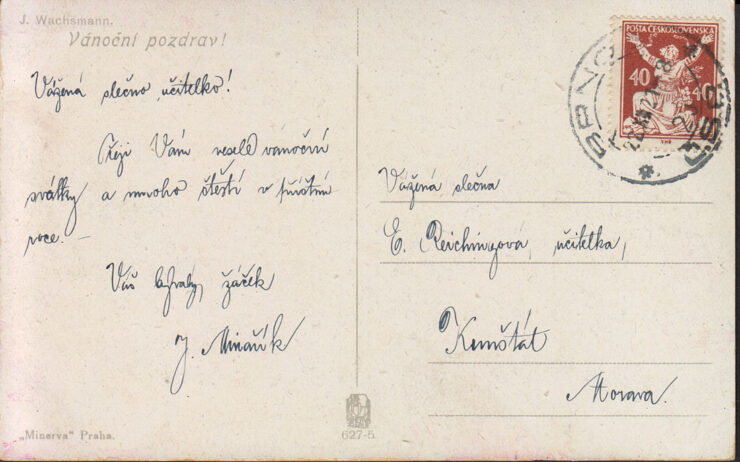 J. Wachsmann.
Vánoční pozdrav!
Vážená slečno učitelko!
Přeji Vám veselé vánoční
svátky a mnoho štěstí v příštím
roce. –
Váš bývalý žáček
J. Minařík
„Minerva" Praha.
627-5.
POŠTA ČESKOSLOVENSKÁ
40 40
BRNO
Vážená slečna
E. Reichingová, učitelka,
Kunštát
Morava.